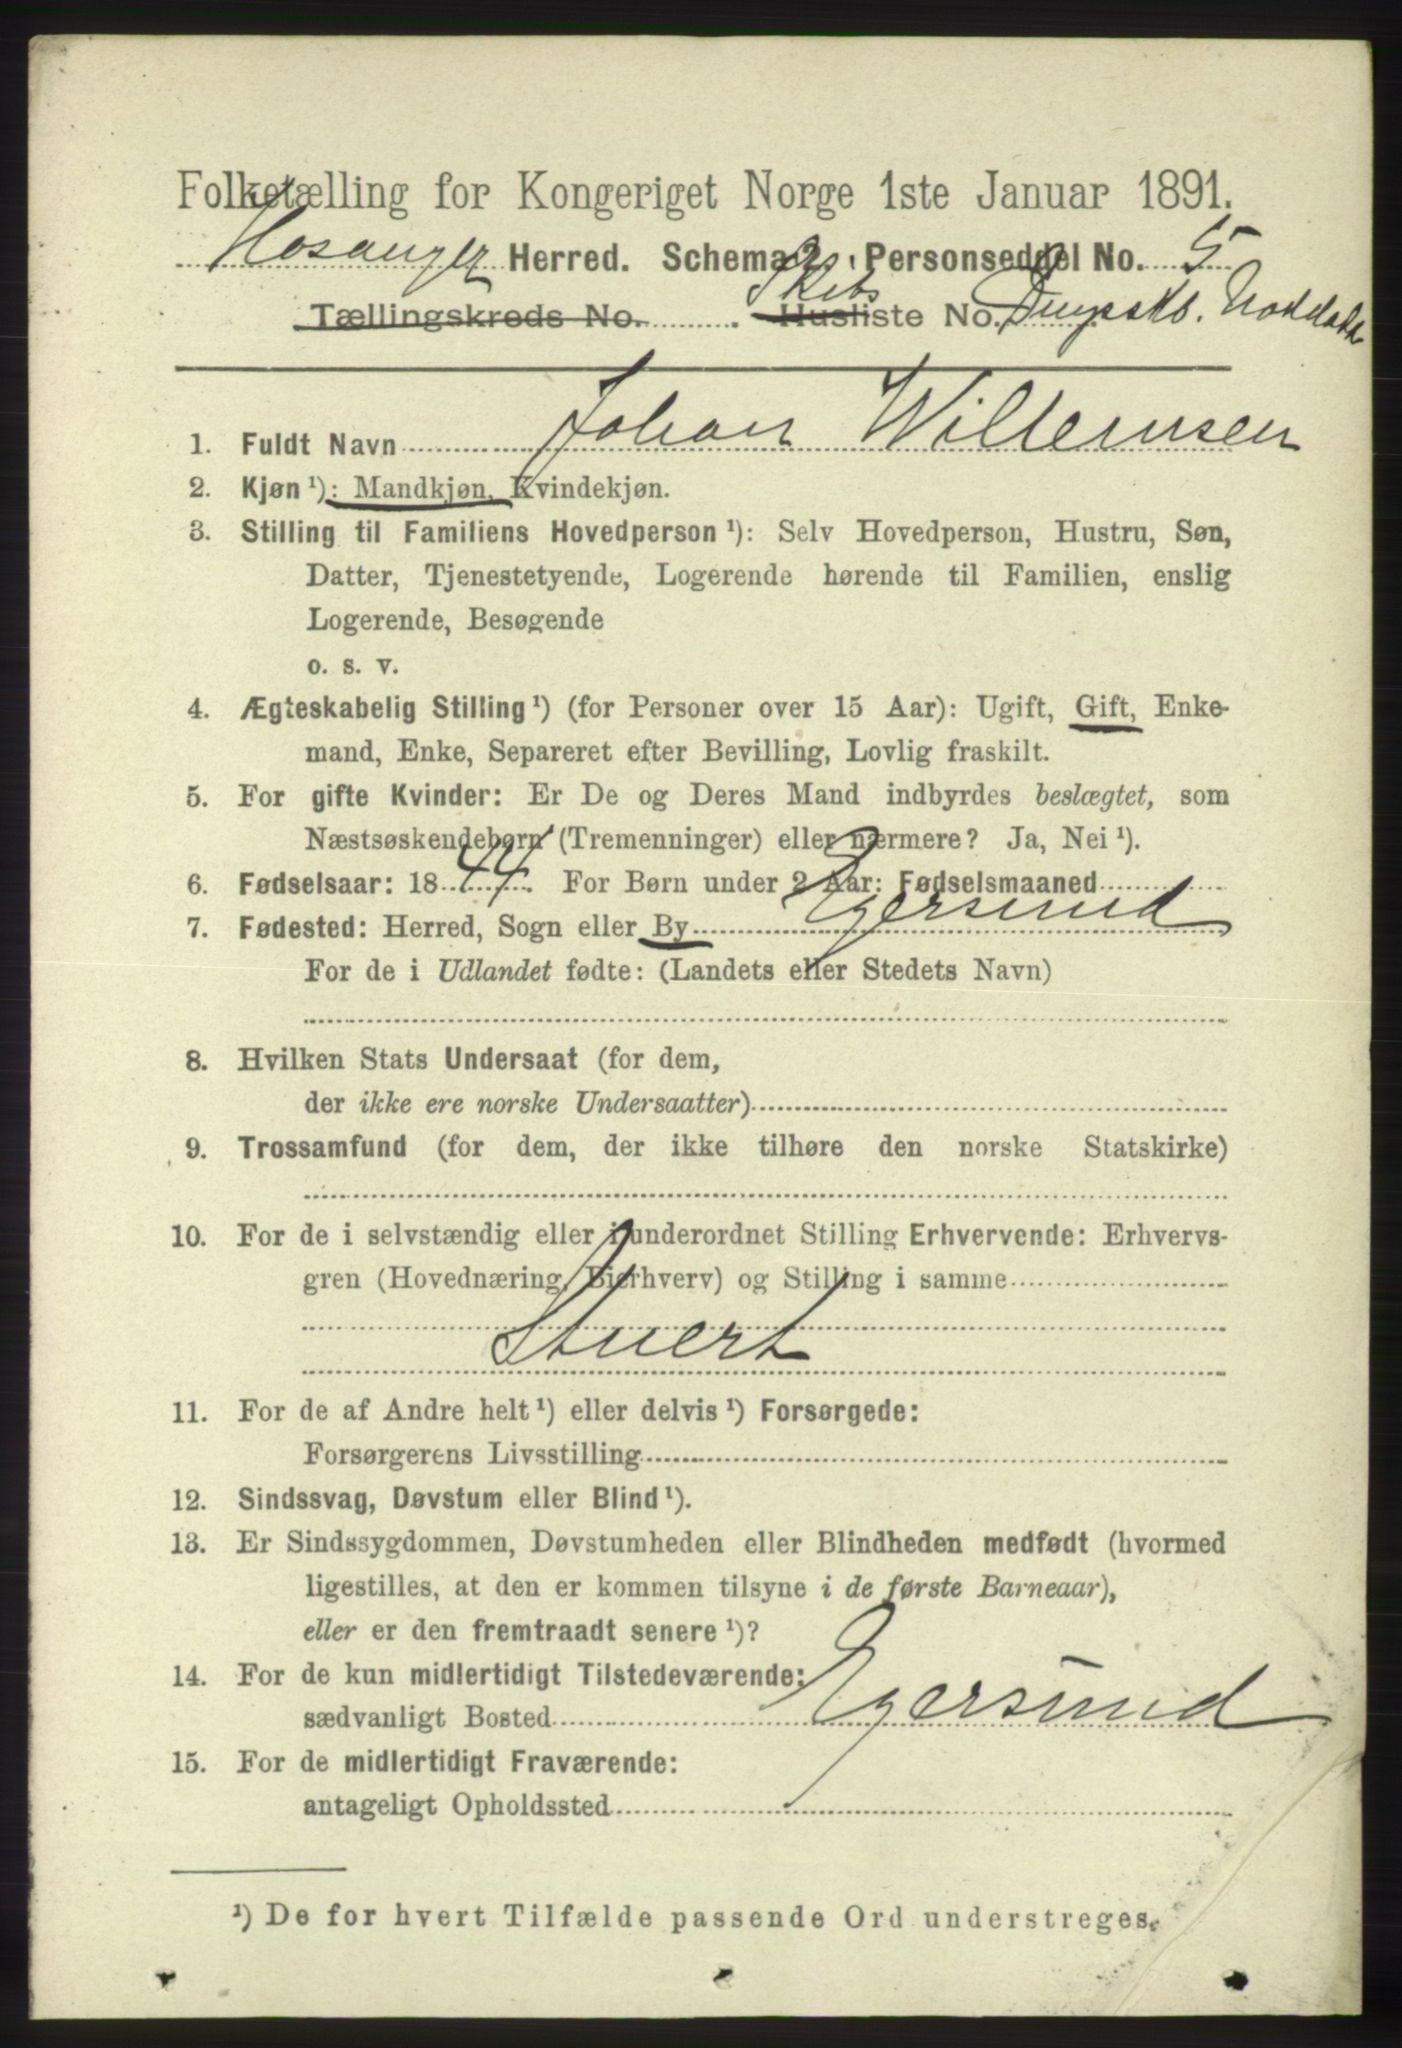 Folketælling for Kongeriget Norge 1ste Januar 1891.
Hosanger Herred. Schema 2, Personseddel No. 5
Tællingskreds No. Skibs Husliste No. Dampskb.
1. Fuldt Navn Johan Willemsen
2. Kjøn ¹): Mandkjøn, Kvindekjøn.
3. Stilling til Familiens Hovedperson ¹): Selv Hovedperson, Hustru, Søn,
Datter, Tjenestetyende, Logerende hørende til Familien, enslig
Logerende, Besøgende
o. s. v.
4. Ægteskabelig Stilling ¹) (for Personer over 15 Aar): Ugift, Gift, Enke-
mand, Enke, Separeret efter Bevilling, Lovlig fraskilt.
5. For gifte Kvinder: Er De og Deres Mand indbyrdes beslægtet, som
Næstsøskendebørn (Tremenninger) eller nærmere? Ja, Nei ¹).
6. Fødselsaar: 1844. For Børn under 2 Aar: Fødselsmaaned
7. Fødested: Herred, Sogn eller By Egersund
For de i Udlandet fødte: (Landets eller Stedets Navn)
8. Hvilken Stats Undersaat (for dem,
der ikke ere norske Undersaatter)
9. Trossamfund (for dem, der ikke tilhøre den norske Statskirke)
10. For de i selvstændig eller i underordnet Stilling Erhvervende: Erhvervs-
gren (Hovednæring, Bierhverv) og Stilling i samme
Stuert
11. For de af Andre helt ¹) eller delvis ¹) Forsørgede:
Forsørgerens Livsstilling
12. Sindssvag, Døvstum eller Blind ¹).
13. Er Sindssygdommen, Døvstumheden eller Blindheden medfødt (hvormed
ligestilles, at den er kommen tilsyne i de første Barneaar),
eller er den fremtraadt senere ¹)?
14. For de kun midlertidigt Tilstedeværende:
sædvanligt Bosted Egersund
15. For de midlertidigt Fraværende:
antageligt Opholdssted
¹) De for hvert Tilfælde passende Ord understreges.